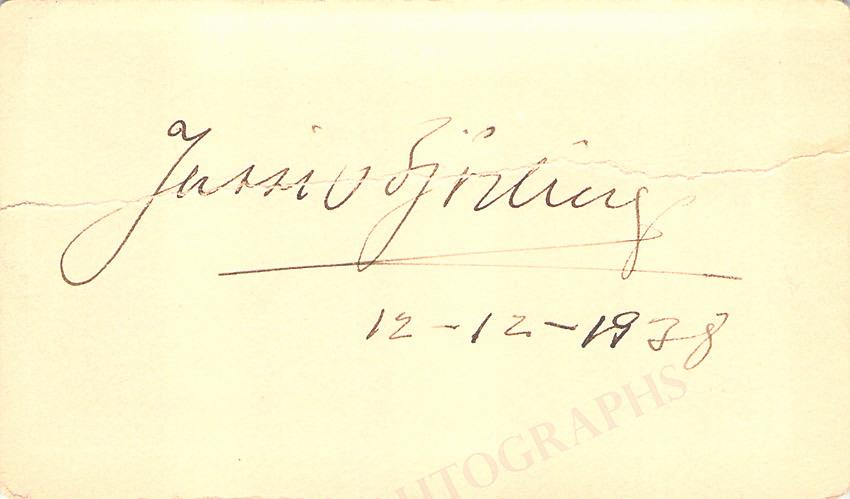 Jussi Björling
12-12-1938
AUTOGRAPHS